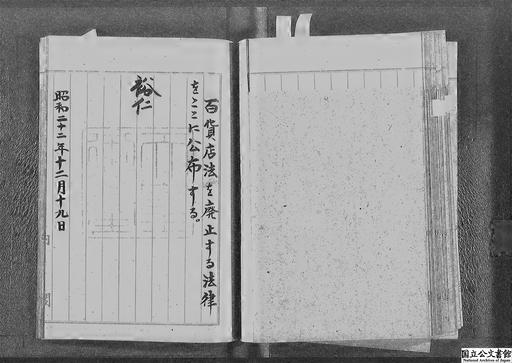 百貨店法を廃止する法律
をここに公布する。
裕仁
昭和二十二年十二月十九日
内閣
国立公文書館
National Archives of Japan